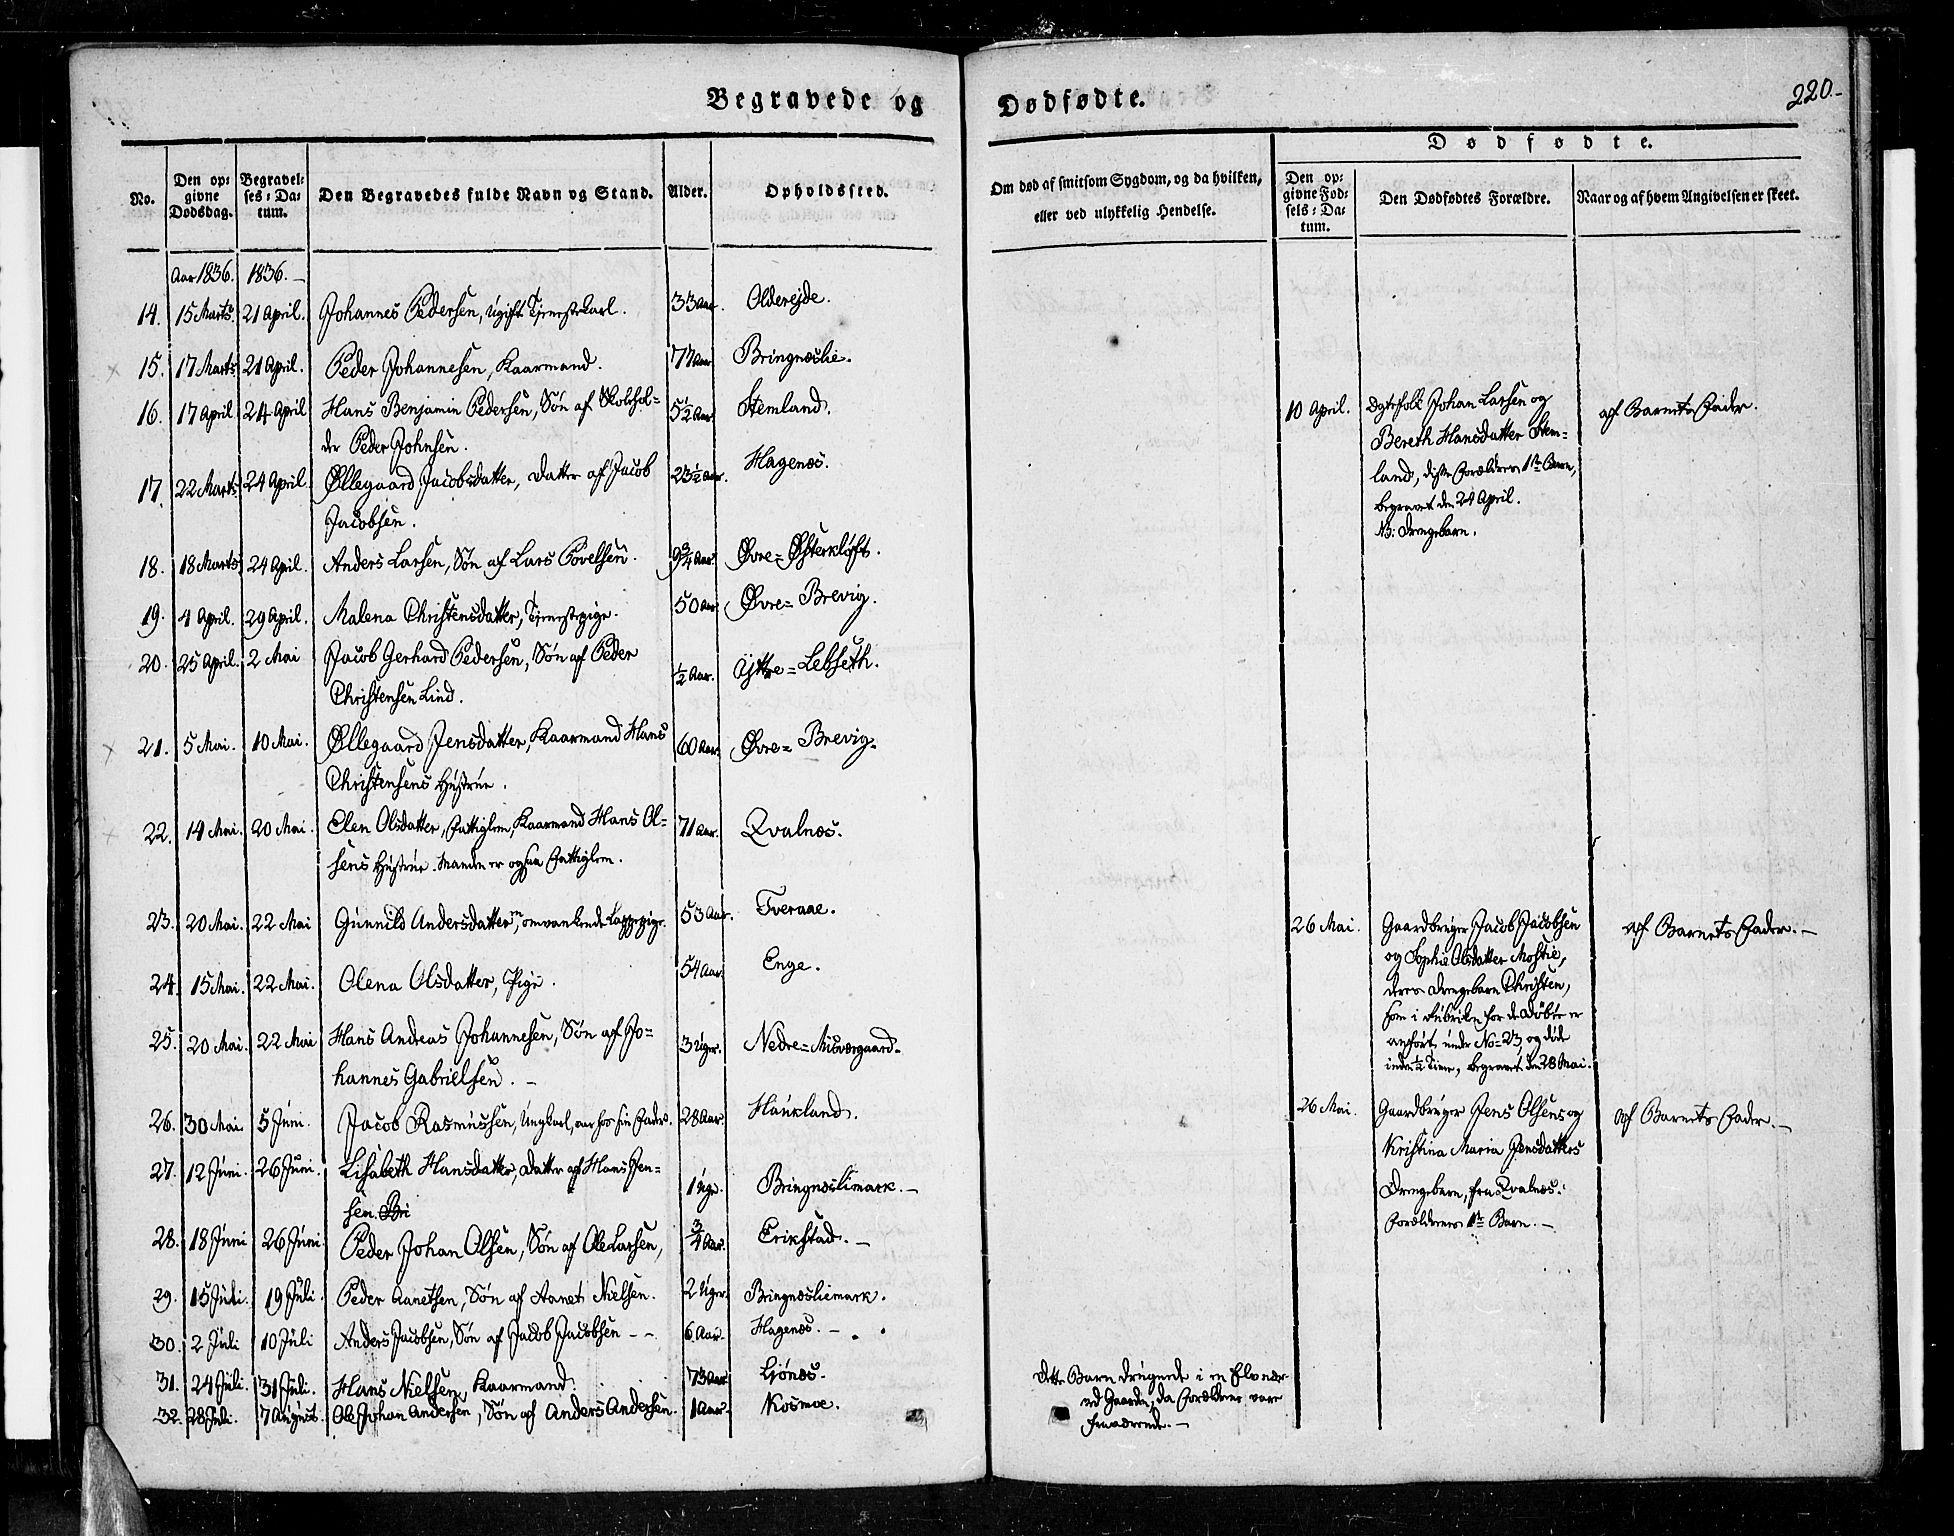 Begravede og Dødfødte.
220.-
Dødfødte.
No.
Den op-
givne
Dødsdag.
Begravel-
ses-Da-
tum.
Den Begravedes fulde Navn og Stand.
Alder.
Opholdssted.
Om død af smitsom Sygdom, og da hvilken,
eller ved ulykkelig Hendelse.
Den op-
givne Fød-
sels-Da-
tum.
Den Dødfødtes Forældre.
Naar og af hvem Angivelsen er skeet.
Aar 1836. 1836. -
14. 15 Marts. 21 April. Johannes Pedersen, Ugift Tjenestekarl. 33 Aar. Oldereide.
15. 17 Marts. 21 April. Peder Johannesen, Kaarmand. 77 Aar Bringnæslie.
16. 17 April. 24 April Hans Benjamin Pedersen, Søn af Skolehol- 5½ Aar Stemland.
der Peder Johnsen.
17. 22 Marts. 24 April. Øllegaard Jacobsdatter, Datter af Jacob 23½ Aar. Hagenæs.
Jacobsen.
18. 18 Marts 24 April. Anders Larsen, Søn af Lars Povelsen. 9¾ Aar. Øvre-Østerkløft.
19. 4 April. 29 April. Malena Christensdatter, Tjenestepige. 50 Aar Øvre-Brevig.
20. 25 April. 2 Mai Jacob Gerhard Pedersen, Søn af Peder ½ Aar. Yttre-Lebseth.
Christensen Lind.
21. 5 Mai. 10 Mai. Øllegaard Jensdatter, Kaarmand Hans 60 Aar. Øvre-Brevig-
Christensens Hustrue.
22. 14 Mai. 20 Mai. Elen Olsdatter, Fattiglem, Kaarmand Hans Ol- 71 Aar. Qvalnæs.
sens Hustrue. Manden er ogsaa Fattiglem.
23. 20 Mai. 22 Mai Gunnild Andersdatter, en omvankende Lappepige. 53 Aar. Tveraae.
24. 15 Mai. 22 Mai. Olena Olsdatter, Pige. 54 Aar. Enge.
25. 20 Mai. 22 Mai Hans Andreas Johannesen, Søn af Jo- 3 Uger. Nedre-Misværgaard-
hannes Gabrielsen. -
26. 30 Mai 5 Juni. Jacob Rasmussen, Ungkarl, var hos sin Fader. 28 Aar. Haukland.
27. 12 Juni. 26 Juni. Lisabeth Hansdatter, Datter af Hans Jen- 1 Uge. Bringnæslimark. -
sen. Bri
28. 18 Juni 26 Juni. Peder Johan Olsen, Søn af Ole Larsen, ¾ Aar. Erikstad. -
29. 15 Juli. 19 Juli. Peder Aanetsen, Søn af Aanet Nielsen. 2 Uger. Bringnæsliemark.
30. 2 Juli 10 Juli Anders Jacobsen, Søn af Jacob Jacobsen - - 6 Aar. Hagenæs. -
31. 24 Juli. 31 Juli. Hans Nielsen, Kaarmand. 73 Aar Ljónæs.
32. 28 Juli. 7 August. Ole Johan Andersen, Søn af Anders Andersen. 1 Aar. Kosmoe.
10 April. Ægtefolk Johan Larsen og af Barnets Fader.
Bereth Hansdatter Stem-
land, disse Forældres 1ste Barn,
begravet den 24 April.
NB: Drengebarn.
26 Mai. Gaardbruger Jacob Jacobsen af Barnets Fader. -
og Sophie Olsdatter Mostie,
deres Drengebarn Christen,
som i Rubriken for de Døbte er
anført under No 23, og døde
inden ½ Time, begravet den 28 Mai.
26 Mai. Gaardbruger Jens Olsens og af Barnets Fader. -
Kristina Maria Jensdatters
Drengebarn, fra Qvalnæs.
Forældrenes 1ste Barn. -
Dette Barn druknede i en Elv nær
ved Gaarden, da Forældrene vare
fraværende. -